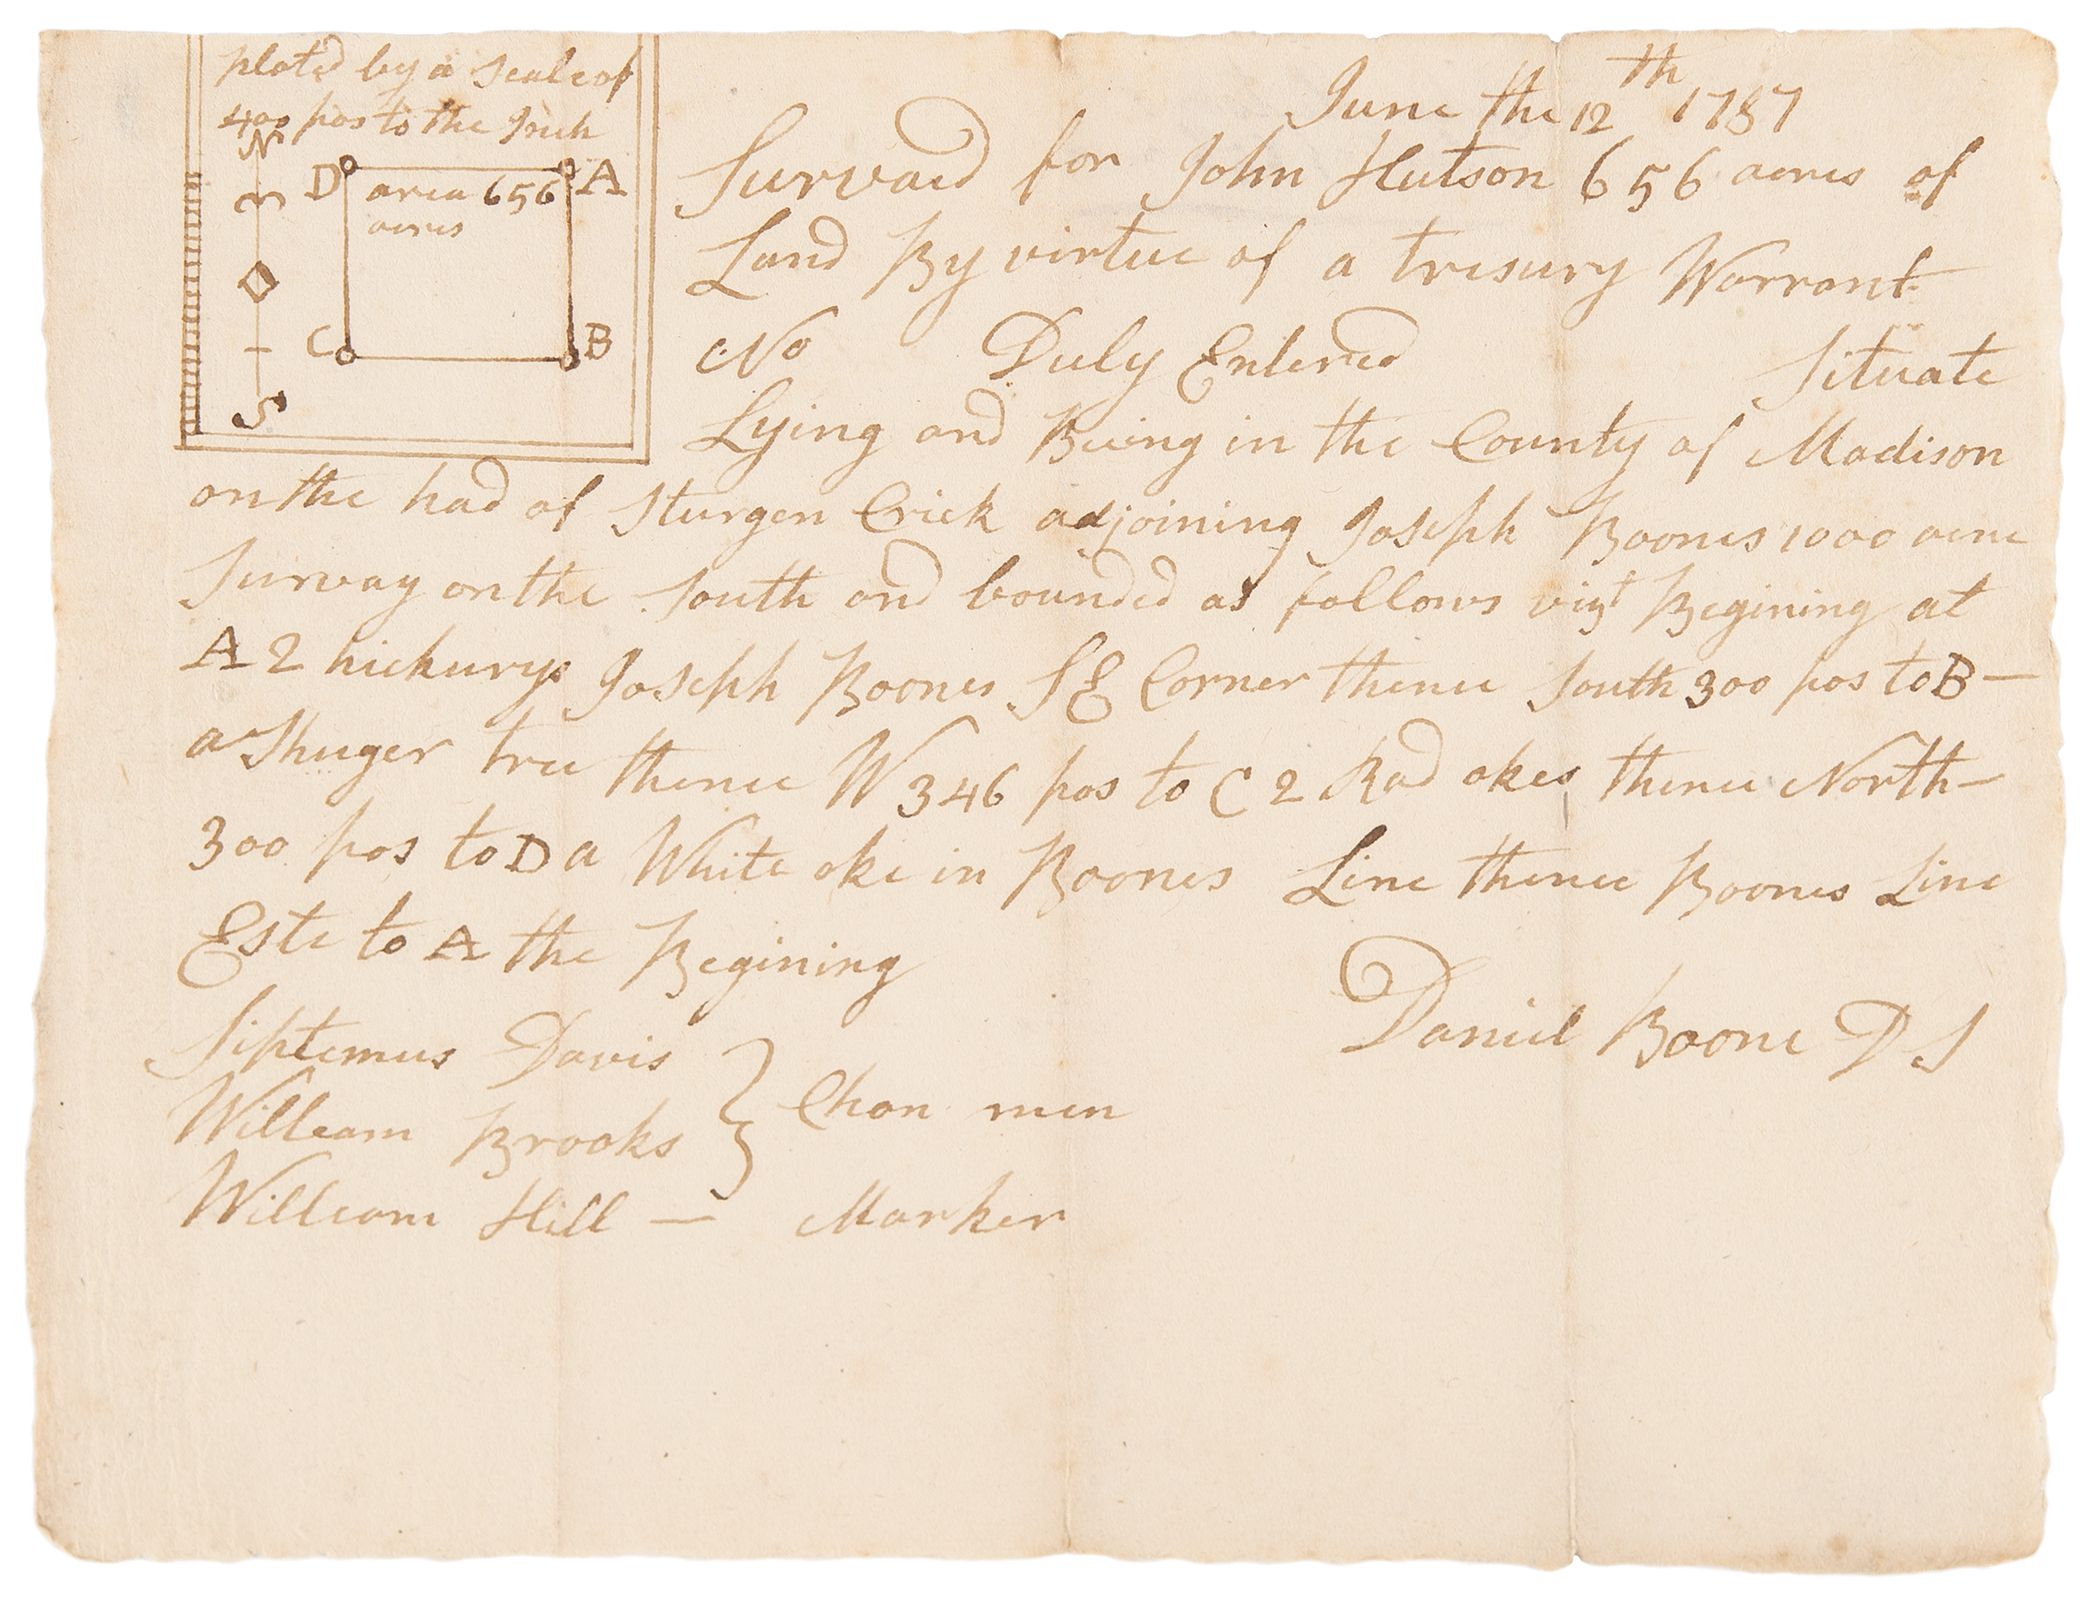 plated by a Scale of
400 pos to the Inch
N
D
A
area 656
acres
C
B
S
June the 12th 1787
Survaid for John Hutson 656 acres of
Land By virtue of a tresury Warrant
No Duly Entered Situate
Lying and Being in the County of Madison
on the had of Sturgen Crick adjoining Joseph Boones 1000 acre
Survay on the South and bounded as follows vizt Begining at
A 2 hickurys Joseph Boones S E Corner thence South 300 pos to B —
a Shuger tree thence W 346 pos to C 2 Rad okes thence North —
300 pos to D a White oke in Boones Line thence Boones Line
Este to A the Begining
Daniel Boone D S
Siptemus Davis
William Brooks } Chan men
William Hill — Marker